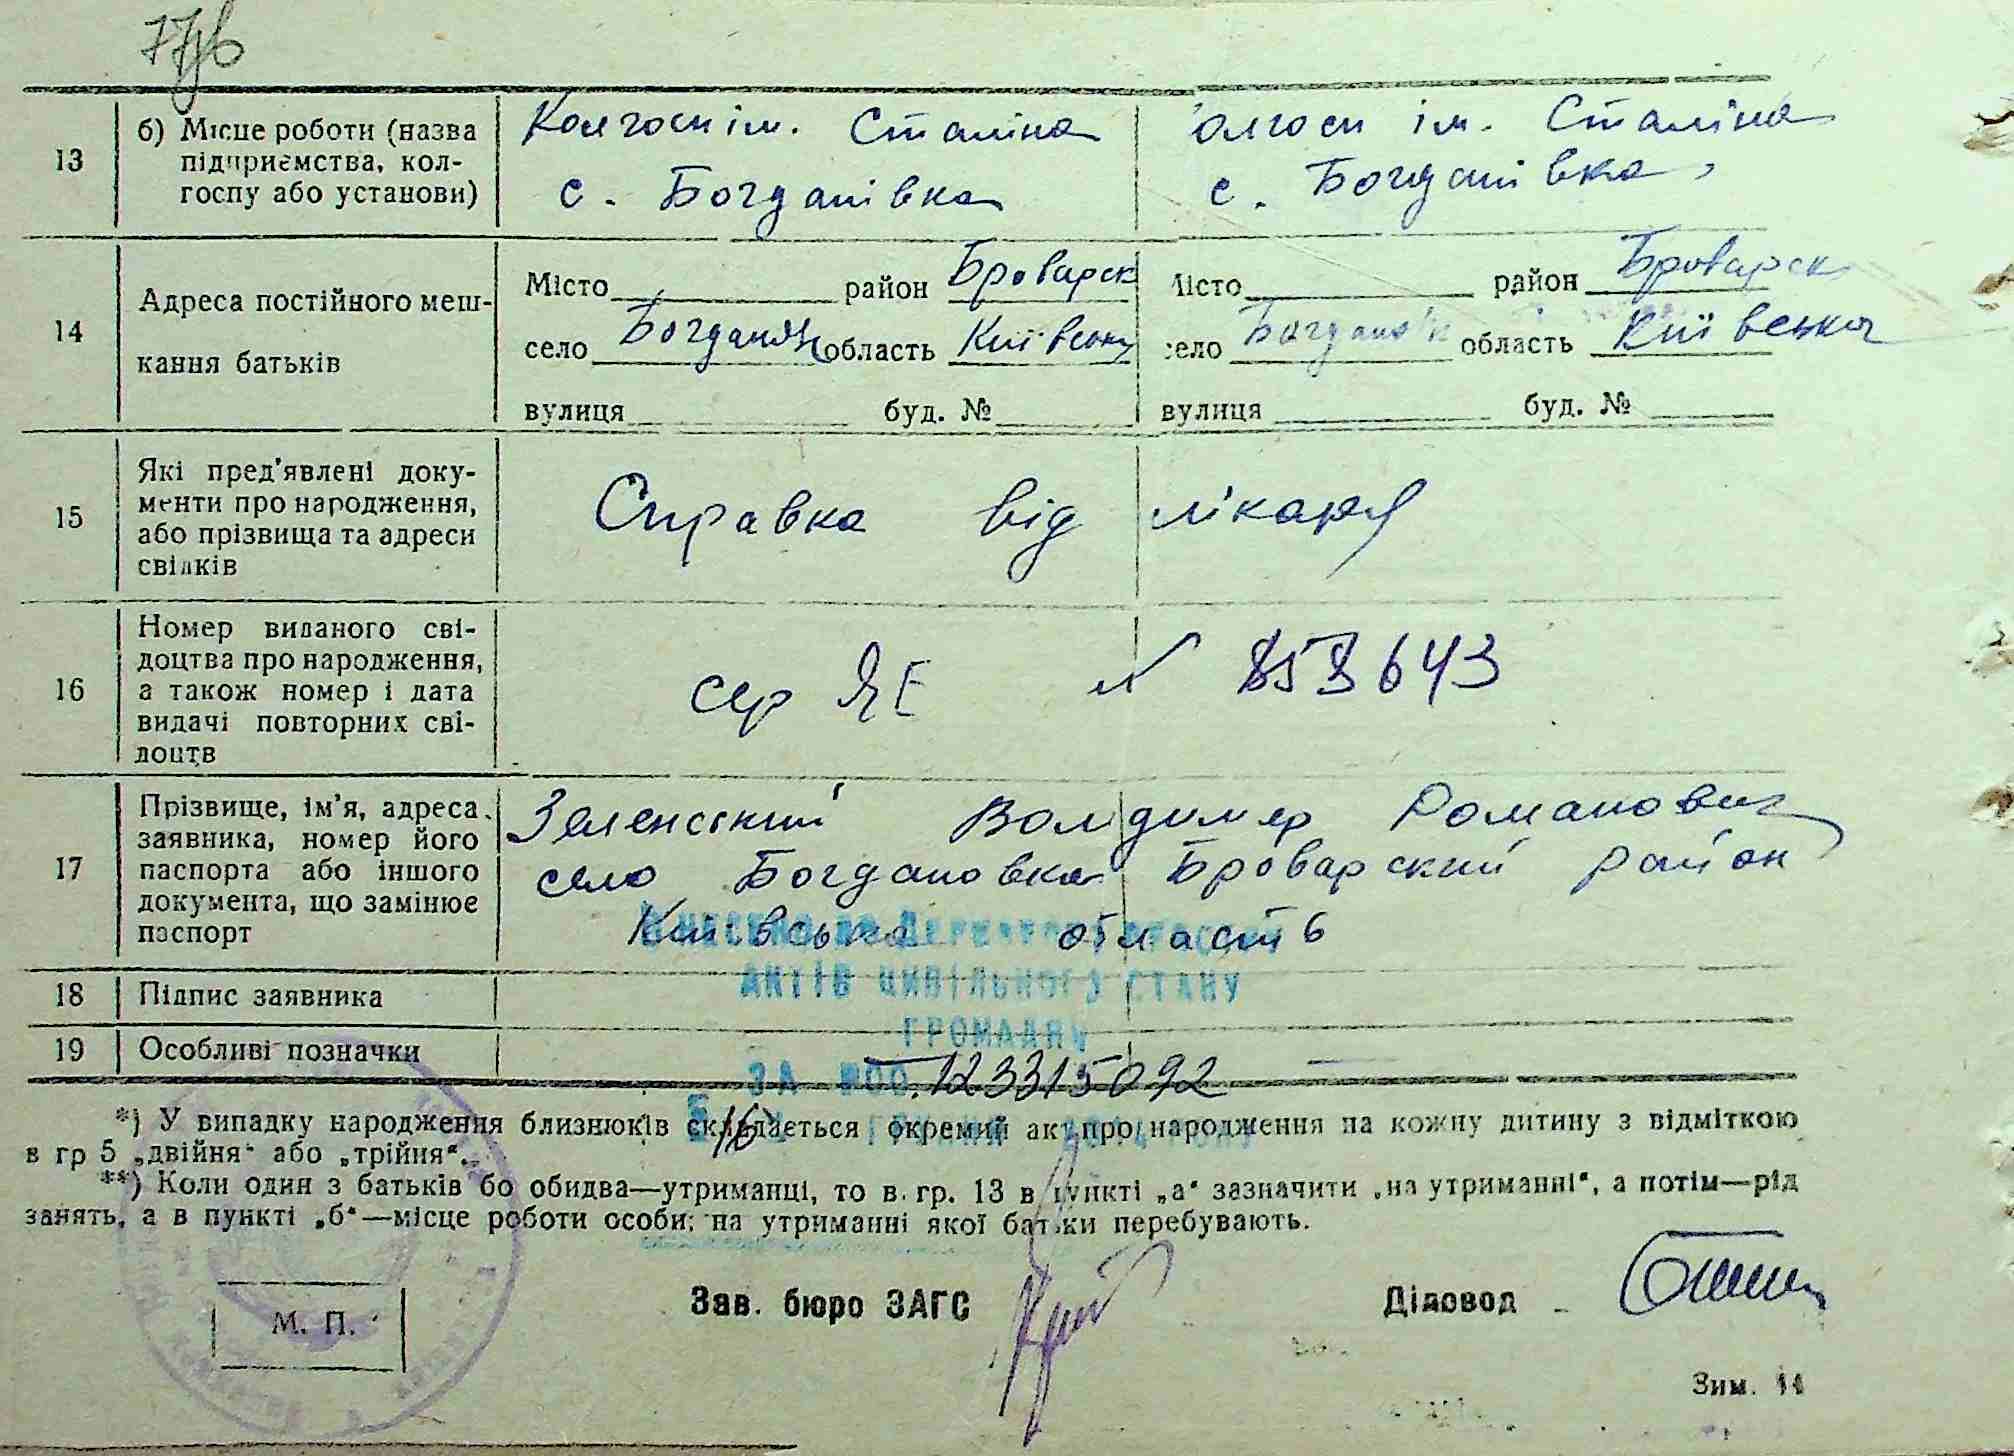 77
13
б) Місце роботи (назва
підприємства, кол-
госпу або установи)
Колгосп ім. Сталіна
с. Богданівка
олгосп ім. Сталіна
с. Богданівка
14
Адреса постійного меш-
кання батьків
Місто район Броварск
село область Київська
вулиця буд. №
місто район Броварск
село область Київська
вулиця буд. №
15
Які пред'явлені доку-
менти про народження,
або прізвища та адреси
свідків
Справка від лікаря
16
Номер виданого сві-
доцтва про народження,
а також номер і дата
видачі повторних сві-
доцтв
сер ЯЕ № 853643
17
Прізвище, ім'я, адреса
заявника, номер його
паспорта або іншого
документа, що замінює
паспорт
Зеленський Володимер Романович
село Богдановка Броварский район
Київська область
АКТІВ ЦИВІЛЬНОГО СТАНУ
ГРОМАДЯН
18
Підпис заявника
19
Особливі позначки
ЗА № 00 123315092
16
*) У випадку народження близнюків складається окремий акт про народження на кожну дитину з відміткою
в гр 5 „двійня“ або „трійня“.
**) Коли один з батьків бо обидва—утриманці, то в. гр. 13 в пункті „а“ зазначити „на утриманні“, а потім—рід
занять, а в пункті „б“—місце роботи особи, на утриманні якої батьки перебувають.
М. П.
Зав. бюро ЗАГС
Діловод
Зим. 14